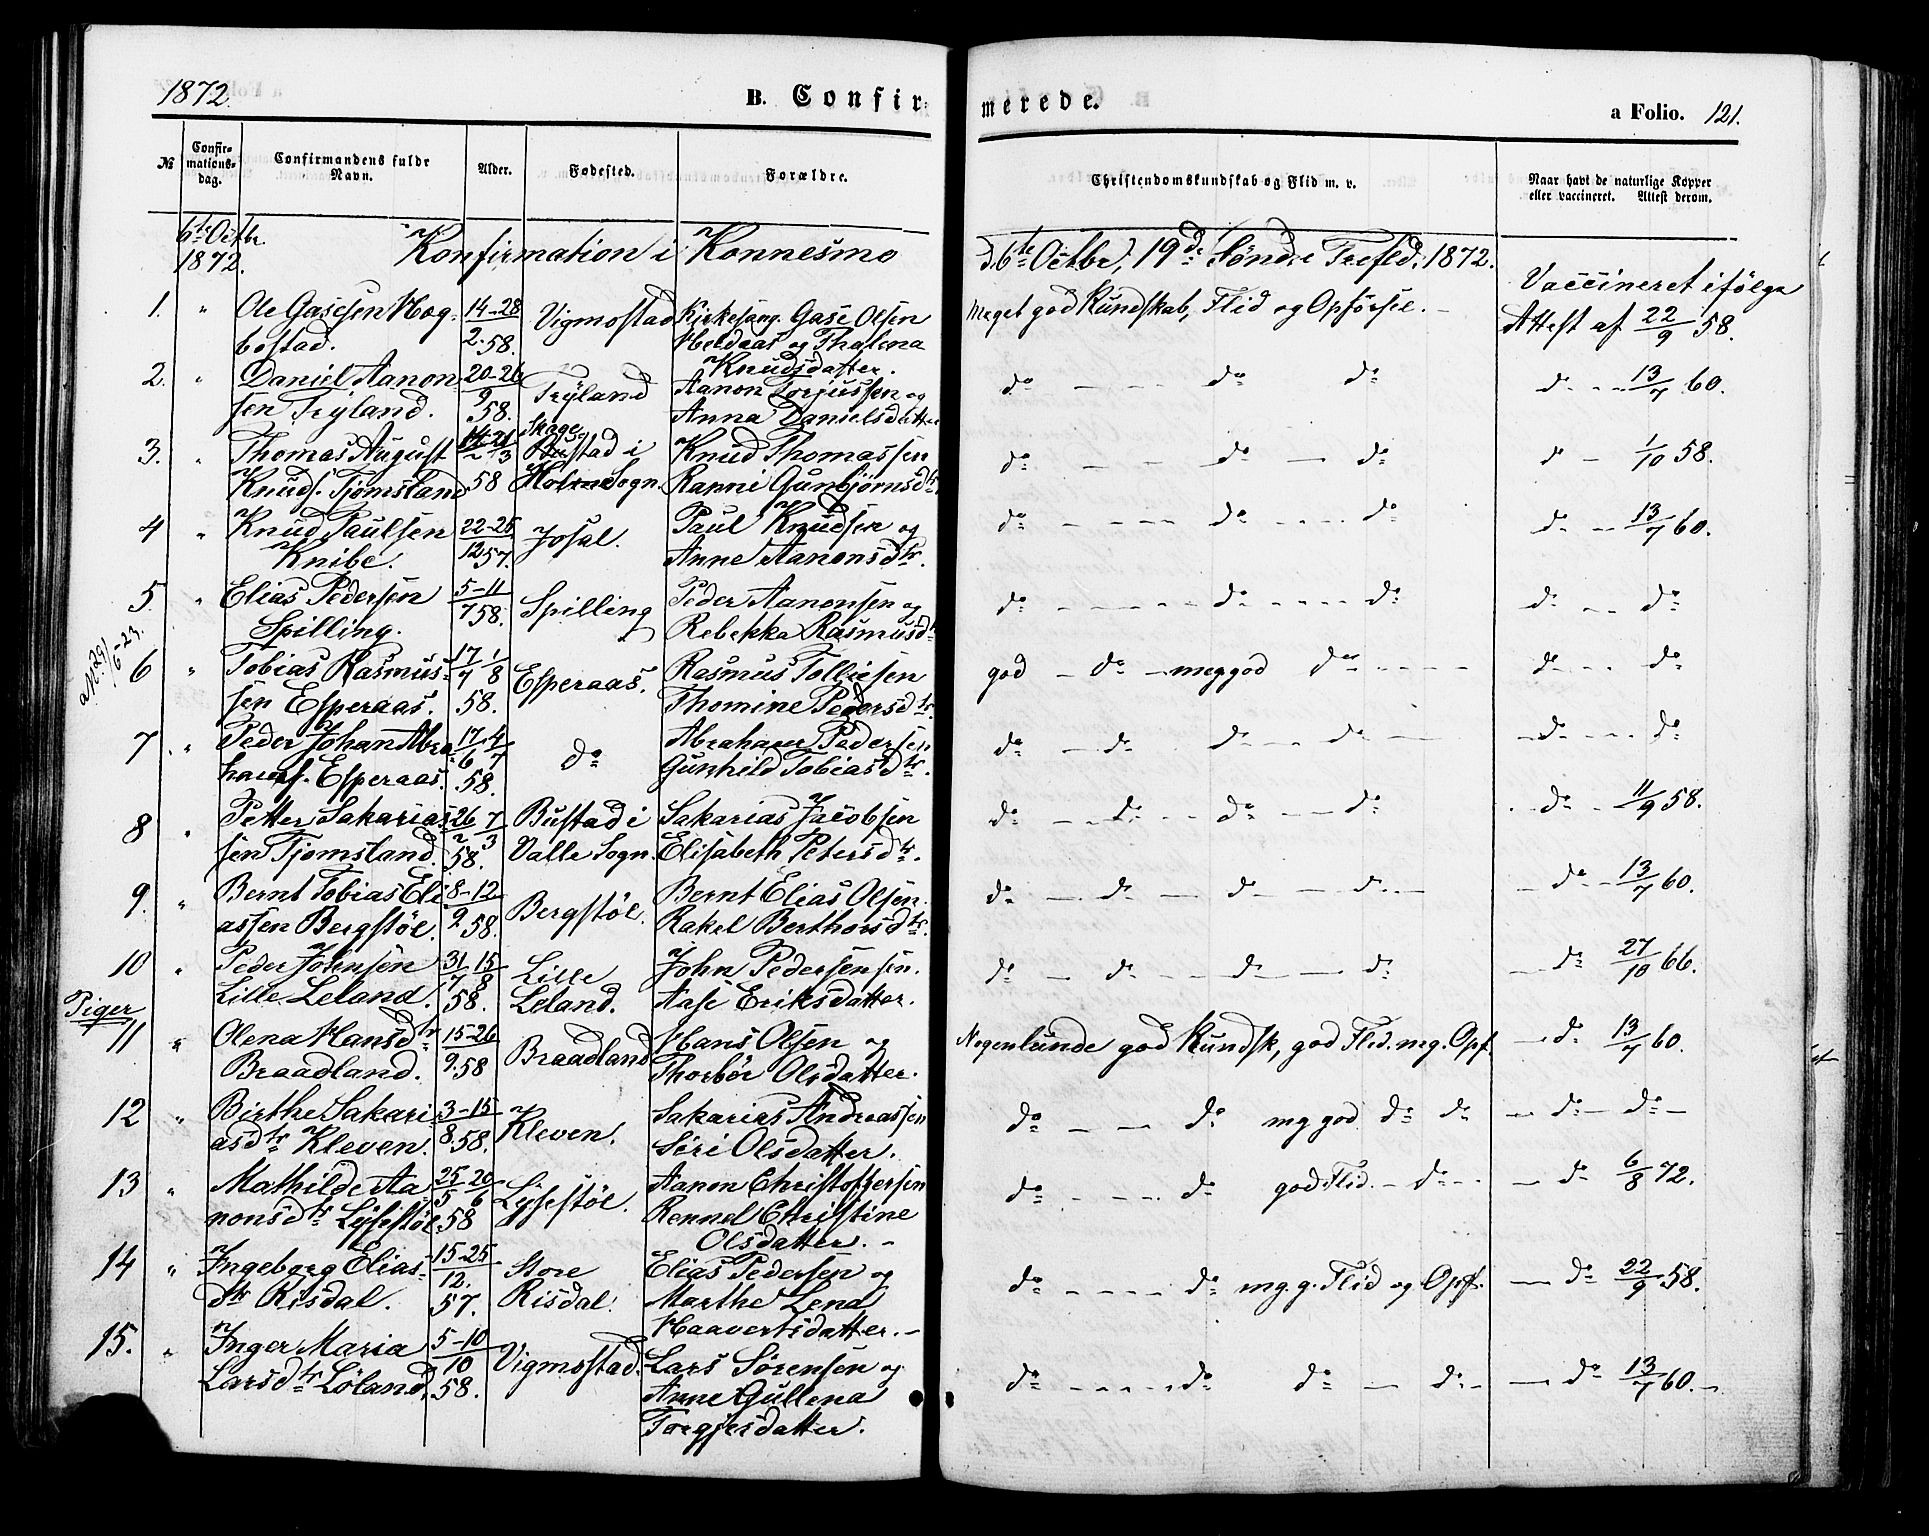 1872. B. Confirmerede. a Folio. 121.
№ Confir-mations-dag. Confirmandens fulde Navn. Alder. Fødested. Forældre. Christendomskundskab og Flid m. v. Naar havt de naturlige Kopper eller vaccineret. Attest derom.
6te Octbr. 1872. Konfirmation i Konnesmo d. 6te Octbr, 19de Sønd. e Trefld. 1872.
1. " Ole Gasesen Høg- 14-28 Vigmostad Kirkesang. Gase Olsen Meget god Kundskab, Flid og Opførsel. Vaccineret ifølge
bostad. 2. 58. Heldaas og Thalena Attest af 22/9 58.
Knudsdatter.
2. " Daniel Aanon 20-26 Trÿland Aanon Torjussen og do do do do 13/7 60.
sen Trÿland. 9 58. Anna Danielsdatter
3. " Thomas August 14-21 Skage Bustad i Knud Thomassen do do do do 1/10 58.
Knuds. Tjømsland 58 Holme Sogn. Ranni Gunbjørnsdtr
4 " Knud Paulsen 22-25 Josal. Paul Knudsen og do do do do 13/7 60.
Knibe. 12 57. Anne Aanonsdtr.
5. " Elias Pedersen 5-11 Spilling Peder Aanonsen og do do do do do
Spilling. 7 58. Rebekka Rasmusd
6 " Tobias Rasmus- 17/7 1/8 Esperaas. Rasmus Tolliesen god do meg god do do do
sen Esperaas. 58. Thomine Pedersdtr.
7. " Peder Johan Abra 17/6 4/7 do Abraham Pedersen do do do do do do
hams. Esperaas. 58. Gunhild Tobiasdtr.
8 " Petter Sakarias 26/2 7/3 Bustad i Sakarias Jacobsen do do do do do 11/9 58.
sen Tjomsland. 58. Valle Sogn. Elisabeth Petersdtr.
9. " Bernt Tobias Eli 8-12 Bergstøl. Bernt Elias Olsen. do do do do do 13/7 60.
assen Bergstøl. 9 58. Rakel Berthorsdtr.
10 " Peder Johnsen 31/7 15/8 Lille John Pedersensen. do do do do do 27/10 66.
Lille Leland. 58. Leland. Aase Eriksdatter.
Piger
11 " Olena Hansdtr 15-26 Braadland Hans Olsen og Nogenlunde god Kundsk, god Flid. meg. Opf. do 13/7 60.
Braadland. 9. 58 Thorbør Olsdatter.
12 " Birthe Sakari- 3-15 Kleven. Sakarias Andreassen do do mg god do do do do
asdtr Kleven. 8. 58. Siri Olsdatter.
13 " Mathilde Aa 25/5 20/6 Lÿsestøl. Aanon Christoffersen do do god Flid. do do 6/8 72.
nonsdtr Lÿsestøl 58 Rennel Christine
Olsdatter.
14 " Ingeborg Elias- 15-25 Store Elias Pedersen og do do mg. g. Flid og Opf. do 22/9 58.
dtr Risdal. 12. 57. Risdal. Marthe Lena
Haavertsdatter.
15. " Inger Maria 5-10 Vigmostad. Lars Sørensen og do do do do do 13/7 60.
Larsdtr Løland, 10 58. Anne Gullena
Torgjersdatter.